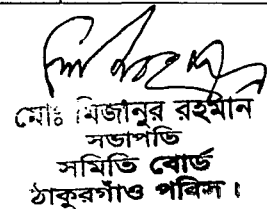 মোঃ মিজানুর রহমান
সভাপতি
সমিতি বোর্ড
ঠাকুরগাঁও পবিস।